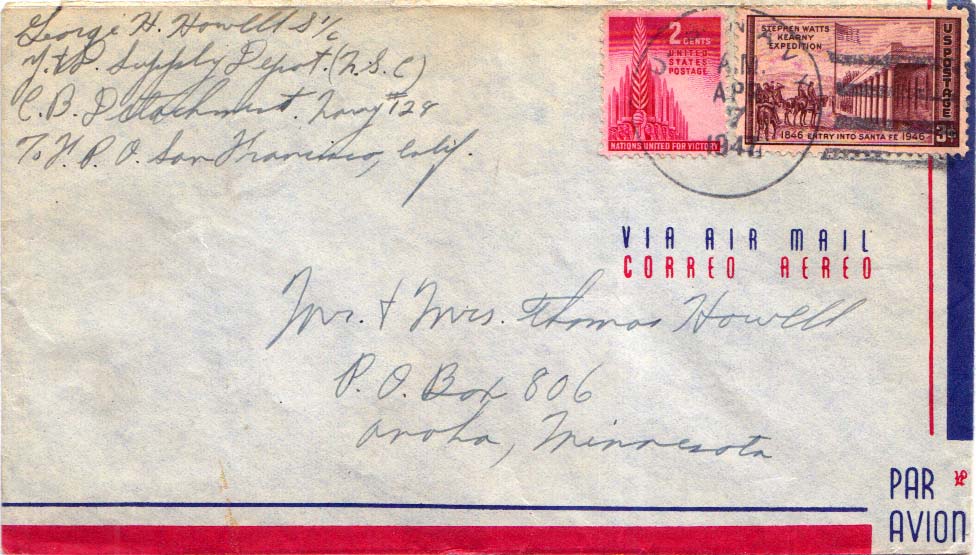 George H. Howell S 1/c
Supply Depot. (N.S.C)
C.B. Detachment. Navy #128
To F. P. O. San Francisco, Calif.
2 CENTS
UNITED
STATES
POSTAGE
NATIONS UNITED FOR VICTORY
STEPHEN WATTS
KEARNY
EXPEDITION
U S POSTAGE
3¢
1846 ENTRY INTO SANTA FE 1946
A.M.
APR
194
VIA AIR MAIL
CORREO AEREO
Mr. & Mrs. Thomas Howell
P. O. Box 806
Anoka, Minnesota
PAR
AVION